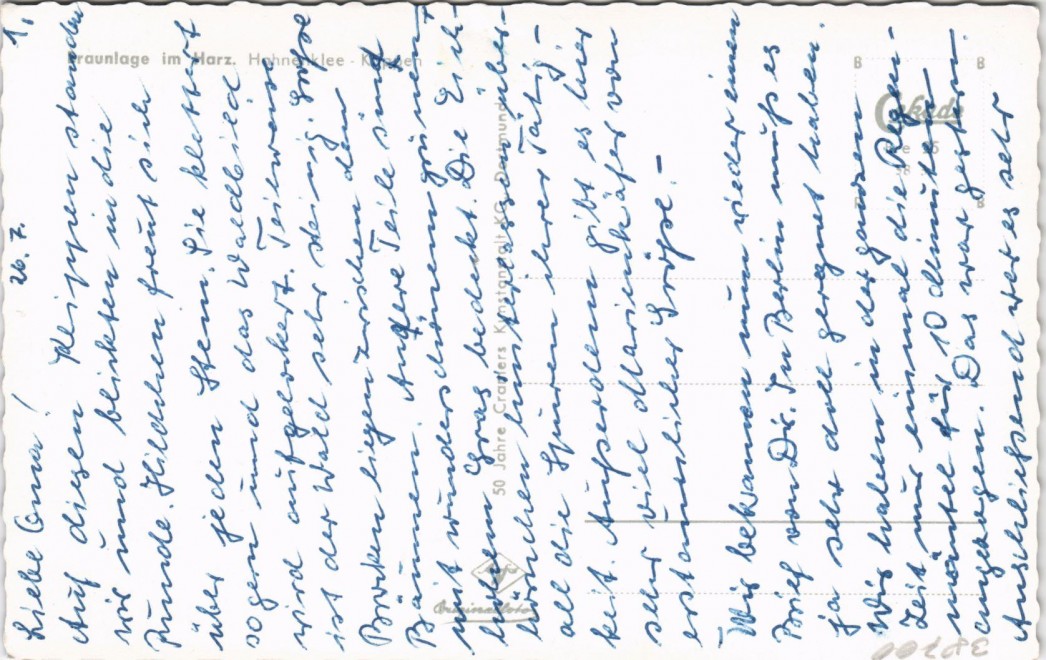 26. 7. 1,
Liebe Oma!
Auf diesen Klippen standen
wir und blickten in die
Runde. Hildchen freut sich
über jeden Stein. Sie klettert
so gern und das Waldbild
wird aufgelockert. Teilweise
ist der Wald sehr steinig. Große
Brocken liegen zwischen den
Bäumen. Andere Teile sind
mit wunderschönem grünem
hohem Gras bedeckt. Die Eich-
hörnchen hinterlassen über-
all die Spuren ihrer Tätig-
keit. Außerdem gibt es hier
sehr viel Marienkäfer von
erstaunlicher Größe. -
Wir bekamen nun wieder einen
Brief von Dir. In Berlin muß es
ja sehr doll geregnet haben.
Wir haben in der ganzen
Zeit nur einmal die Regen-
mäntel für 10 Minuten
angezogen. Das war gestern.
Anschließend war es sehr
Braunlage im Harz. Hahnenklee - Klippen
50 Jahre Cramers Kunstanstalt KG. Dortmund
Cekade
Agfa
Originalfoto
B
B
38700